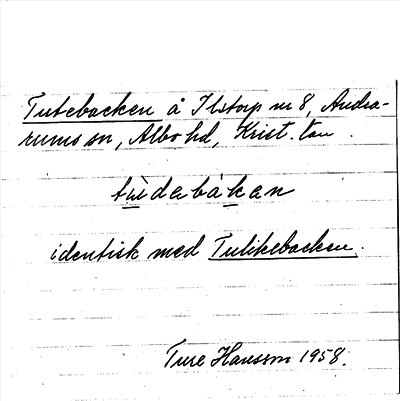 Tutebacken å Ilstorp nr 8, Andra-
rums sn, Albo hd, Krist. län.
tùdabàkan
identisk med Tulikebacken.
Ture Hansson 1958.